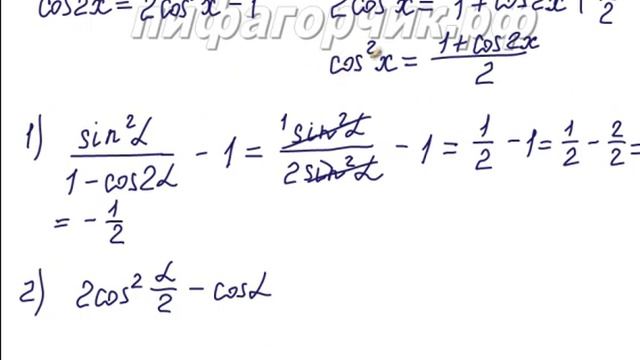 cos2x = 2cos²x - 1 2cos²x = 1 + cos2x | 1/2
пифагорчик.рф
cos²x = (1 + cos2x)/2
1) sin²α/(1 - cos2α) - 1 = ¹sin²α/(2sin²α) - 1 = 1/2 - 1 = 1/2 - 2/2 =
= - 1/2
2) 2cos² α/2 - cosα